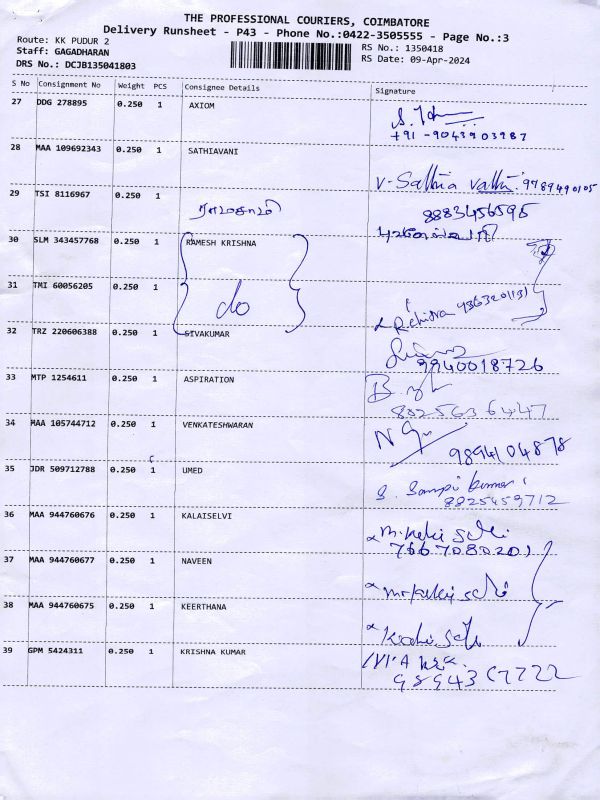 THE PROFESSIONAL COURIERS, COIMBATORE
Delivery Runsheet - P43 - Phone No.:0422-3505555 - Page No.:3
Route: KK PUDUR 2
Staff: GAGADHARAN
DRS No.: DCJB135041803
RS No.: 1350418
RS Date: 09-Apr-2024
S No Consignment No Weight PCS Consignee Details Signature
27 DDG 278895 0.250 1 AXIOM
+91 -9043903987
28 MAA 109692343 0.250 1 SATHIAVANI
V-Sathia Vathi. 9789490105
29 TSI 8116967 0.250 1
8883456595
30 SLM 343457768 0.250 1 RAMESH KRISHNA
31 TMI 60056205 0.250 1 do
R.Chitra 9363201131
32 TRZ 220606388 0.250 1 SIVAKUMAR
9940018726
33 MTP 1254611 0.250 1 ASPIRATION
8825636447
34 MAA 105744712 0.250 1 VENKATESHWARAN
9894104878
35 JDR 509712788 0.250 1 UMED
8825459712
36 MAA 944760676 0.250 1 KALAISELVI
7667080201
37 MAA 944760677 0.250 1 NAVEEN
38 MAA 944760675 0.250 1 KEERTHANA
39 GPM 5424311 0.250 1 KRISHNA KUMAR